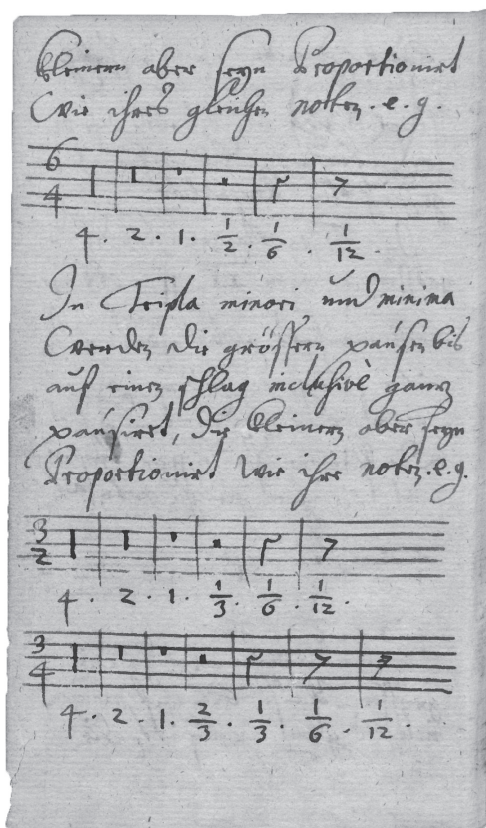 kleinern aber seyn Proportionirt
Wie ihres gleichen noten. e. g.
6
4
4. 2. 1. 1/2. 1/6. 1/12.
In Tripla minori und minima
Werden die grössern pausen bis
auf einen schlag inclusivè gantz
pausiret, die kleinern aber seyn
Proportionirt wie ihre noten. e. g.
3
2
4. 2. 1. 1/3. 1/6. 1/12.
3
4
4. 2. 1. 2/3. 1/3. 1/6. 1/12.